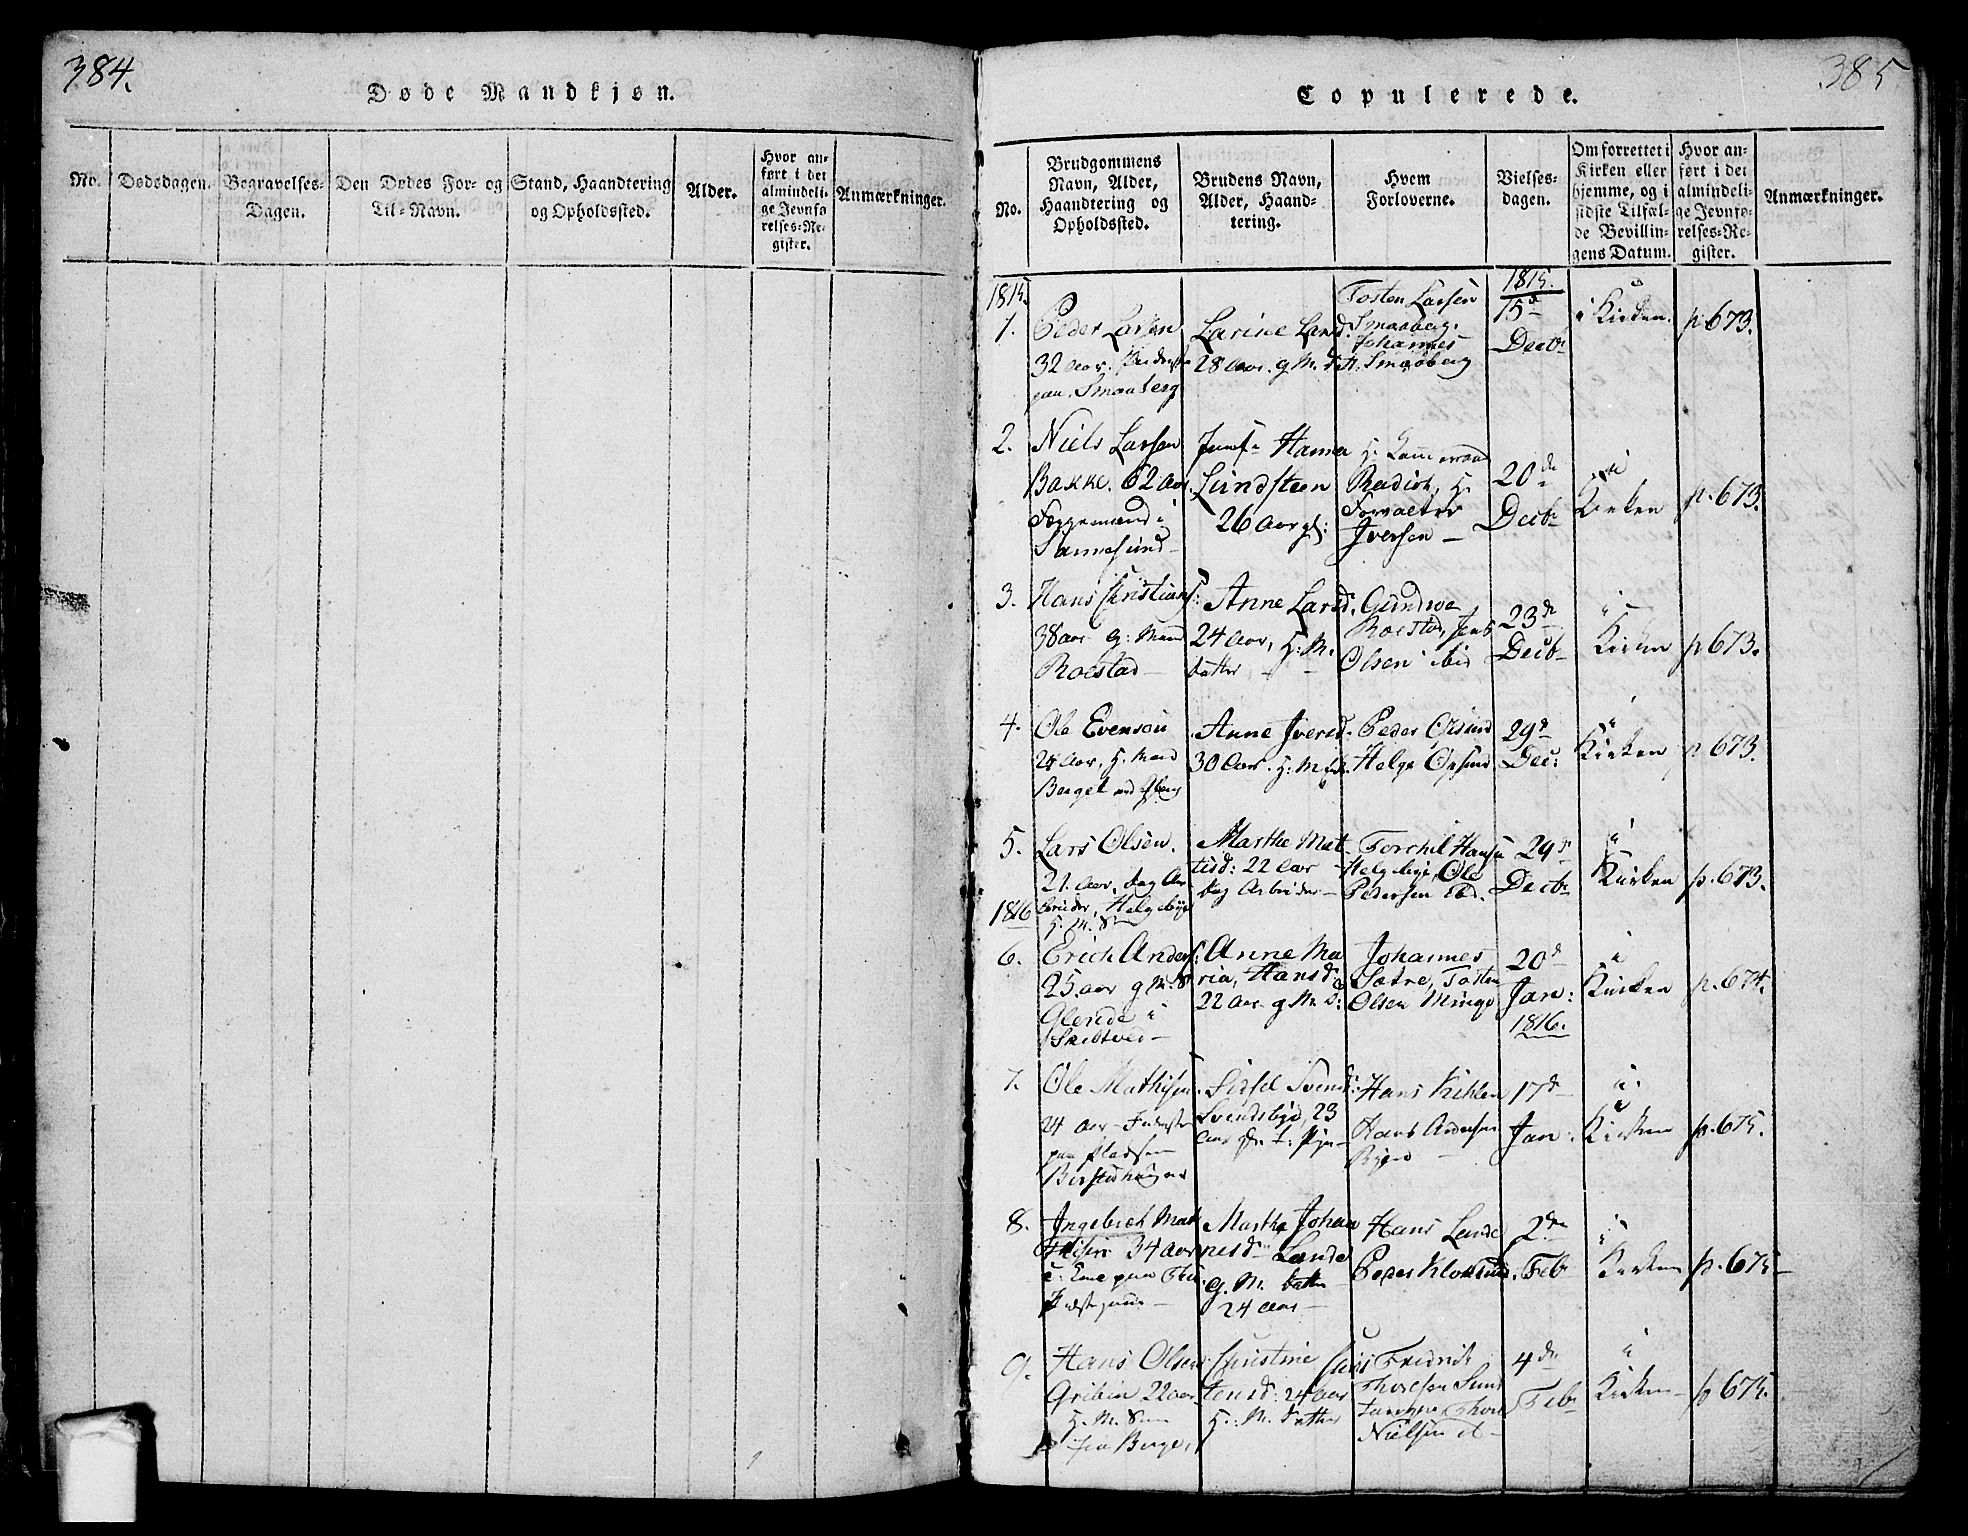 384.
Døde Mandkjøn.
No.
Dødedagen.
Begravelses-
Dagen.
Den Dødes For- og
Til-Navn.
Stand, Haandtering
og Opholdssted.
Alder.
Hvor an-
ført i det
almindeli-
ge Jevnfø-
relses-Re-
gister.
Anmærkninger.
385
Copulerede.
No.
Brudgommens
Navn, Alder,
Haandtering og
Opholdssted.
Brudens Navn,
Alder, Haand-
tering.
Hvem
Forloverne.
Vielses-
dagen.
Om forrettet i
Kirken eller
hjemme, og i
sidste Tilfæl-
de Bevillin-
gens Datum.
Hvor an-
ført i det
almindeli-
ge Jevnfø-
relses-Re-
gister.
Anmærkninger.
1815.
1.
Peder Larsen
32 Aar.
paa Smaaberg
Larine Lard:
28 Aar. g M. d
Tosten Larsen
Smaaberg.
Johannes
Smaaberg
1815.
15d
Decbr
i Kirken.
p. 673.
2.
Niels Larsen
Bakke. 62 Aar.
Færgemand i
Sannesund
Jomf. Hanna
Lundsteen
26 Aar gl:
H. Kammerraad
Radich, H.
Forvalter
Iversen
20de
Decbr
i
Kirken
p. 673.
3.
Hans Christians:
38 Aar g: Mand
Roestad
Anne Larsd.
24 Aar, G: M.
datter
Gundroe
Roestad, Jens
Olsen ibid
23de
Decbr
i
Kirken
p 673.
4.
Ole Evensen
24 Aar, G. Mand
Berget
Anne Iversd.
30 Aar. G: M
Peder Ørsund
Helge Ørsund
29d
Dec:
i
Kirken
p 673.
5.
Lars Olsen.
21. Aar, Dag Ar
beider, Helgebye
G. M. Søn
Marthe Mat
tisd: 22 Aar
Dag Arbeider
Torchil Hansen
Helgebye, Ole
Pedersen ibd.
29d
Decbr
i
Kirken
p. 673.
1816
6.
Erich Anders:
25. Aar g M. S
Glende i
Skibtved
Anne Ma
ria, Hansd
22 Aar g M. D:
Johannes
Sætre, Tosten
Olsen Minge
20d
Jan:
1816.
i
Kirken
p. 674.
7.
Ole Mathisen
24 Aar
paa Pladsen
Sidsel Svends:
Svendsbye, 23
Aar
Hans Kihlen
Hans Andersen
17d
Jan:
i
Kirken
p. 675.
8.
Ingebret Mat
thisen 34 Aar
Marthe Johan
nesd Lande
g. M. datter
24 Aar
Hans Lande
Peder Kloksund.
2den
Feb
i
Kirken
p. 675
9.
Hans Olsen
22 Aar
G. M. Søn
fra Berge,
Christine Chris
tensd: 24 Aar
G: M. datter
Fredrik
Thoresen Sund
Thore
Nielsen
4de
Febr
i
Kirken
p 675.